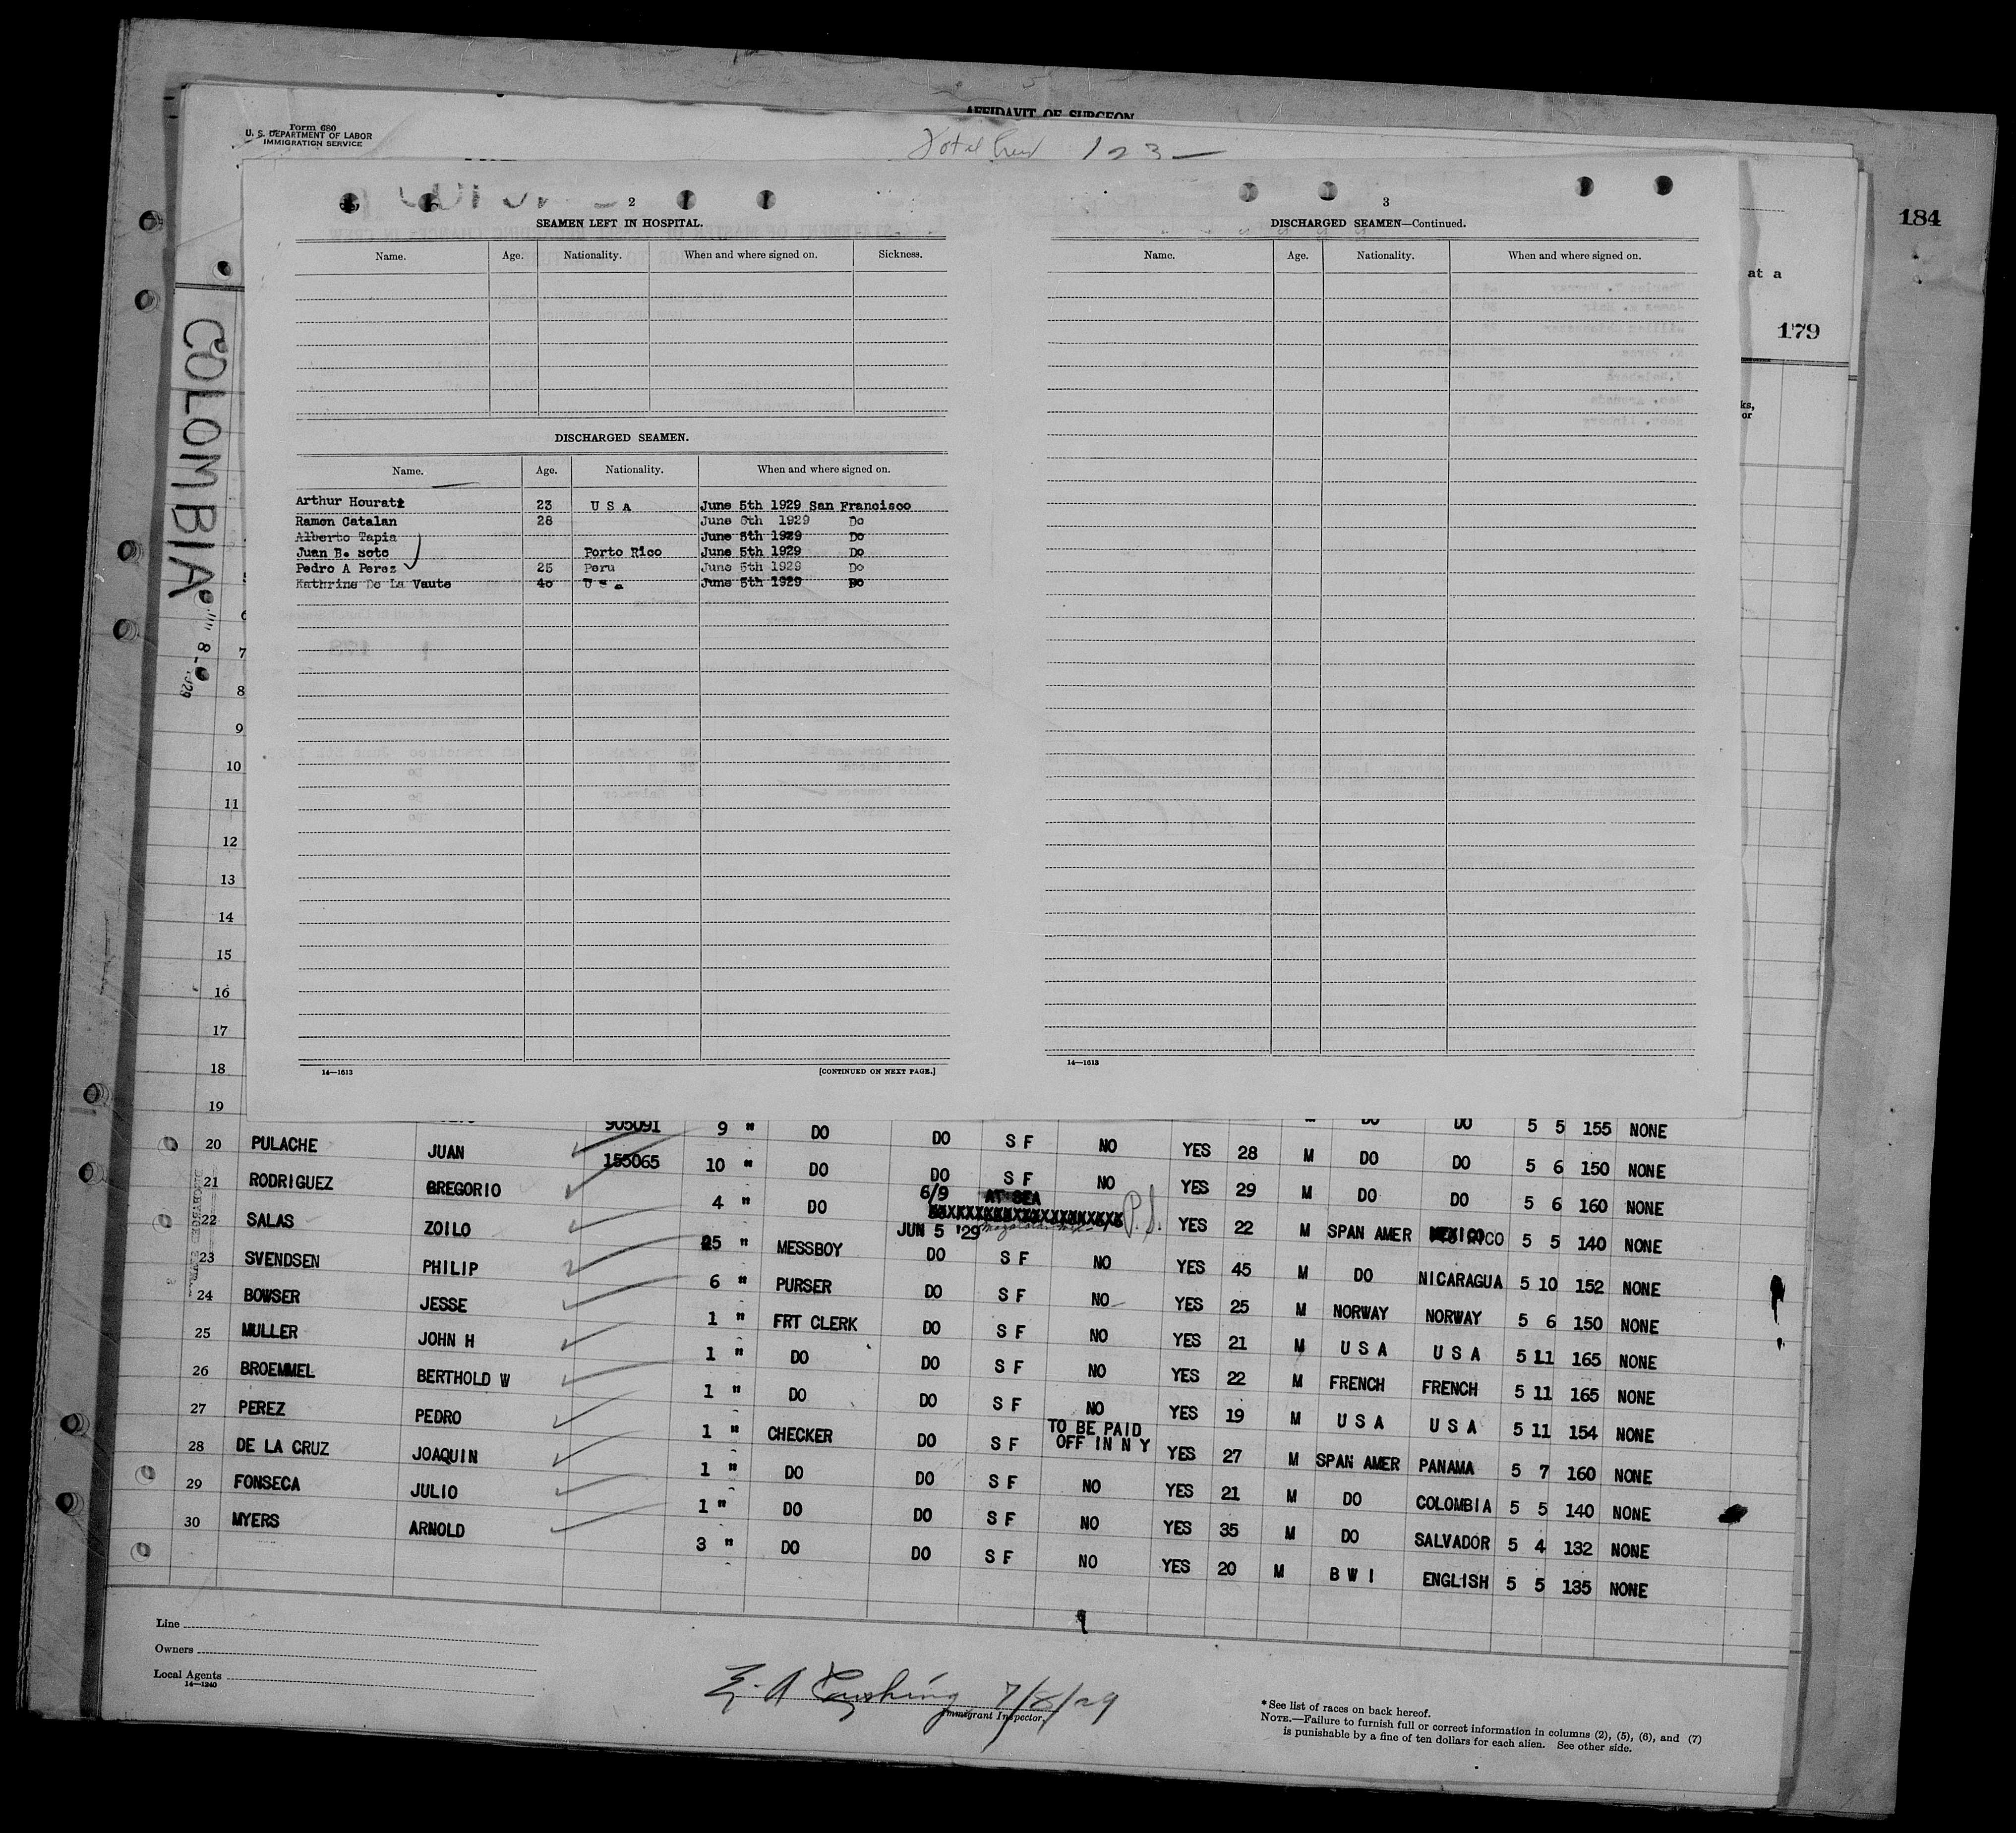 AFFIDAVIT OF SURGEON
Form 680
U. S. DEPARTMENT OF LABOR
IMMIGRATION SERVICE
Total Crew 123—
184
at a
179
ks,
or
COLOMBIA
8
2
SEAMEN LEFT IN HOSPITAL.
Name. Age. Nationality. When and where signed on. Sickness.
DISCHARGED SEAMEN.
Name. Age. Nationality. When and where signed on.
Arthur Hourati 23 U S A June 5th 1929 San Francisco
Ramon Catalan 28 June 5th 1929 Do
Alberto Tapia June 5th 1929 Do
Juan B. soto Porto Rico June 5th 1929 Do
Pedro A Perez 25 Peru June 5th 1929 Do
Kathrine De La Vaute 40 U s a June 5th 1929 Do
14—1613 [CONTINUED ON NEXT PAGE.]
3
DISCHARGED SEAMEN—Continued.
Name. Age. Nationality. When and where signed on.
14—1613
6
7
8
9
10
11
12
13
14
15
16
17
18
19 905091 9 " DO DO S F NO M DO DO 5 5 155 NONE
20 PULACHE JUAN 155065 10 " DO DO S F NO YES 28 M DO DO 5 6 150 NONE
21 RODRIGUEZ GREGORIO 4 " DO 6/9 AT SEA YES 29 M DO DO 5 6 160 NONE
22 SALAS ZOILO 25 " MESSBOY JUN 5 '29 P.S. YES 22 M SPAN AMER MEXICO 5 5 140 NONE
23 SVENDSEN PHILIP 6 " PURSER DO S F NO YES 45 M DO NICARAGUA 5 10 152 NONE
24 BOWSER JESSE 1 " FRT CLERK DO S F NO YES 25 M NORWAY NORWAY 5 6 150 NONE
25 MULLER JOHN H 1 " DO DO S F NO YES 21 M U S A U S A 5 11 165 NONE
26 BROEMMEL BERTHOLD W 1 " DO DO S F NO YES 22 M FRENCH FRENCH 5 11 165 NONE
27 PEREZ PEDRO 1 " CHECKER DO S F NO YES 19 M U S A U S A 5 11 154 NONE
28 DE LA CRUZ JOAQUIN 1 " DO DO S F TO BE PAID OFF IN N Y YES 27 M SPAN AMER PANAMA 5 7 160 NONE
29 FONSECA JULIO 1 " DO DO S F NO YES 21 M DO COLOMBIA 5 5 140 NONE
30 MYERS ARNOLD 3 " DO DO S F NO YES 35 M DO SALVADOR 5 4 132 NONE
DO S F NO YES 20 M B W I ENGLISH 5 5 135 NONE
Line
Owners
Local Agents
14—1240
E. A Cushing 7/8/29
Immigrant Inspector.
*See list of races on back hereof.
NOTE.—Failure to furnish full or correct information in columns (2), (5), (6), and (7)
is punishable by a fine of ten dollars for each alien. See other side.